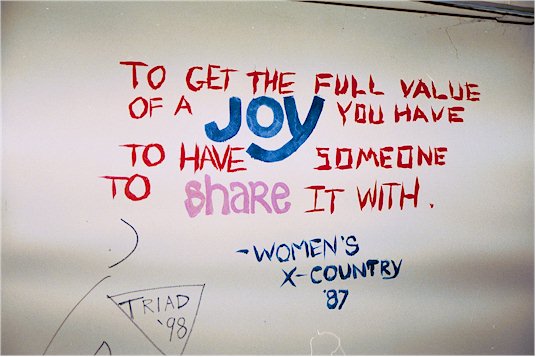 TO GET THE FULL VALUE
OF A JOY YOU HAVE
TO HAVE SOMEONE
TO share IT WITH.
-WOMEN'S
X-COUNTRY
'87
TRIAD
'98